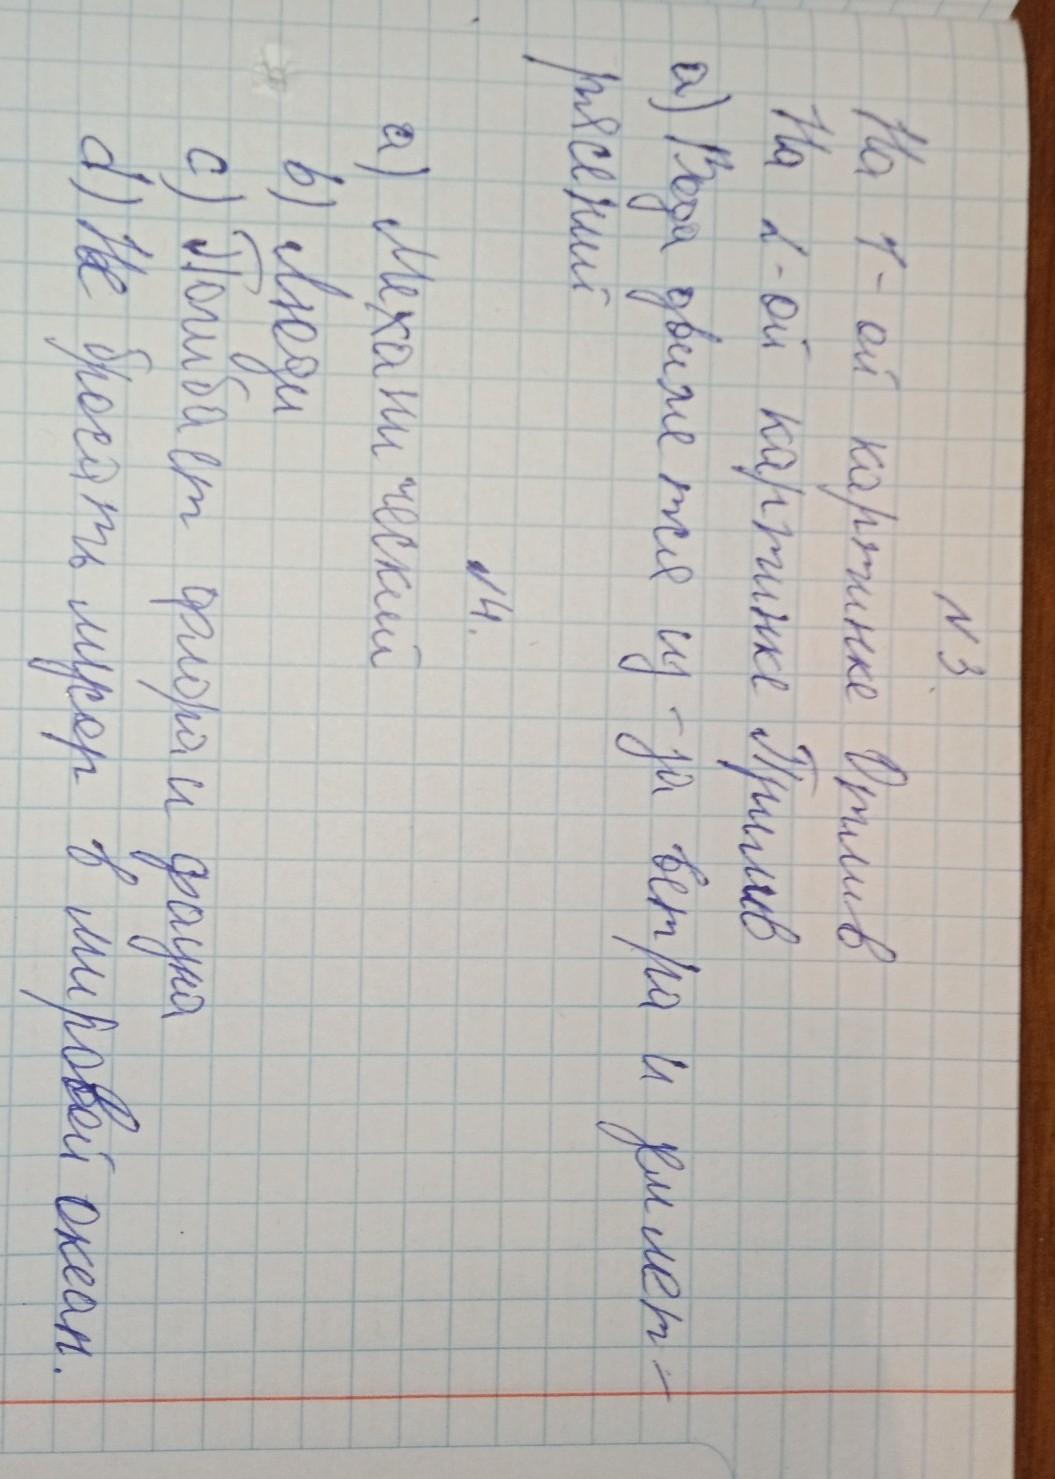 N 3.
На 1-ой картинке Отлив
На 2-ой картинке Прилив
а) Вода движется из-за ветра и землет-
рясений
N4.
а) Механический
b) Люди
c) Погибает флора и фауна
d) Не бросать мусор в мировой океан.